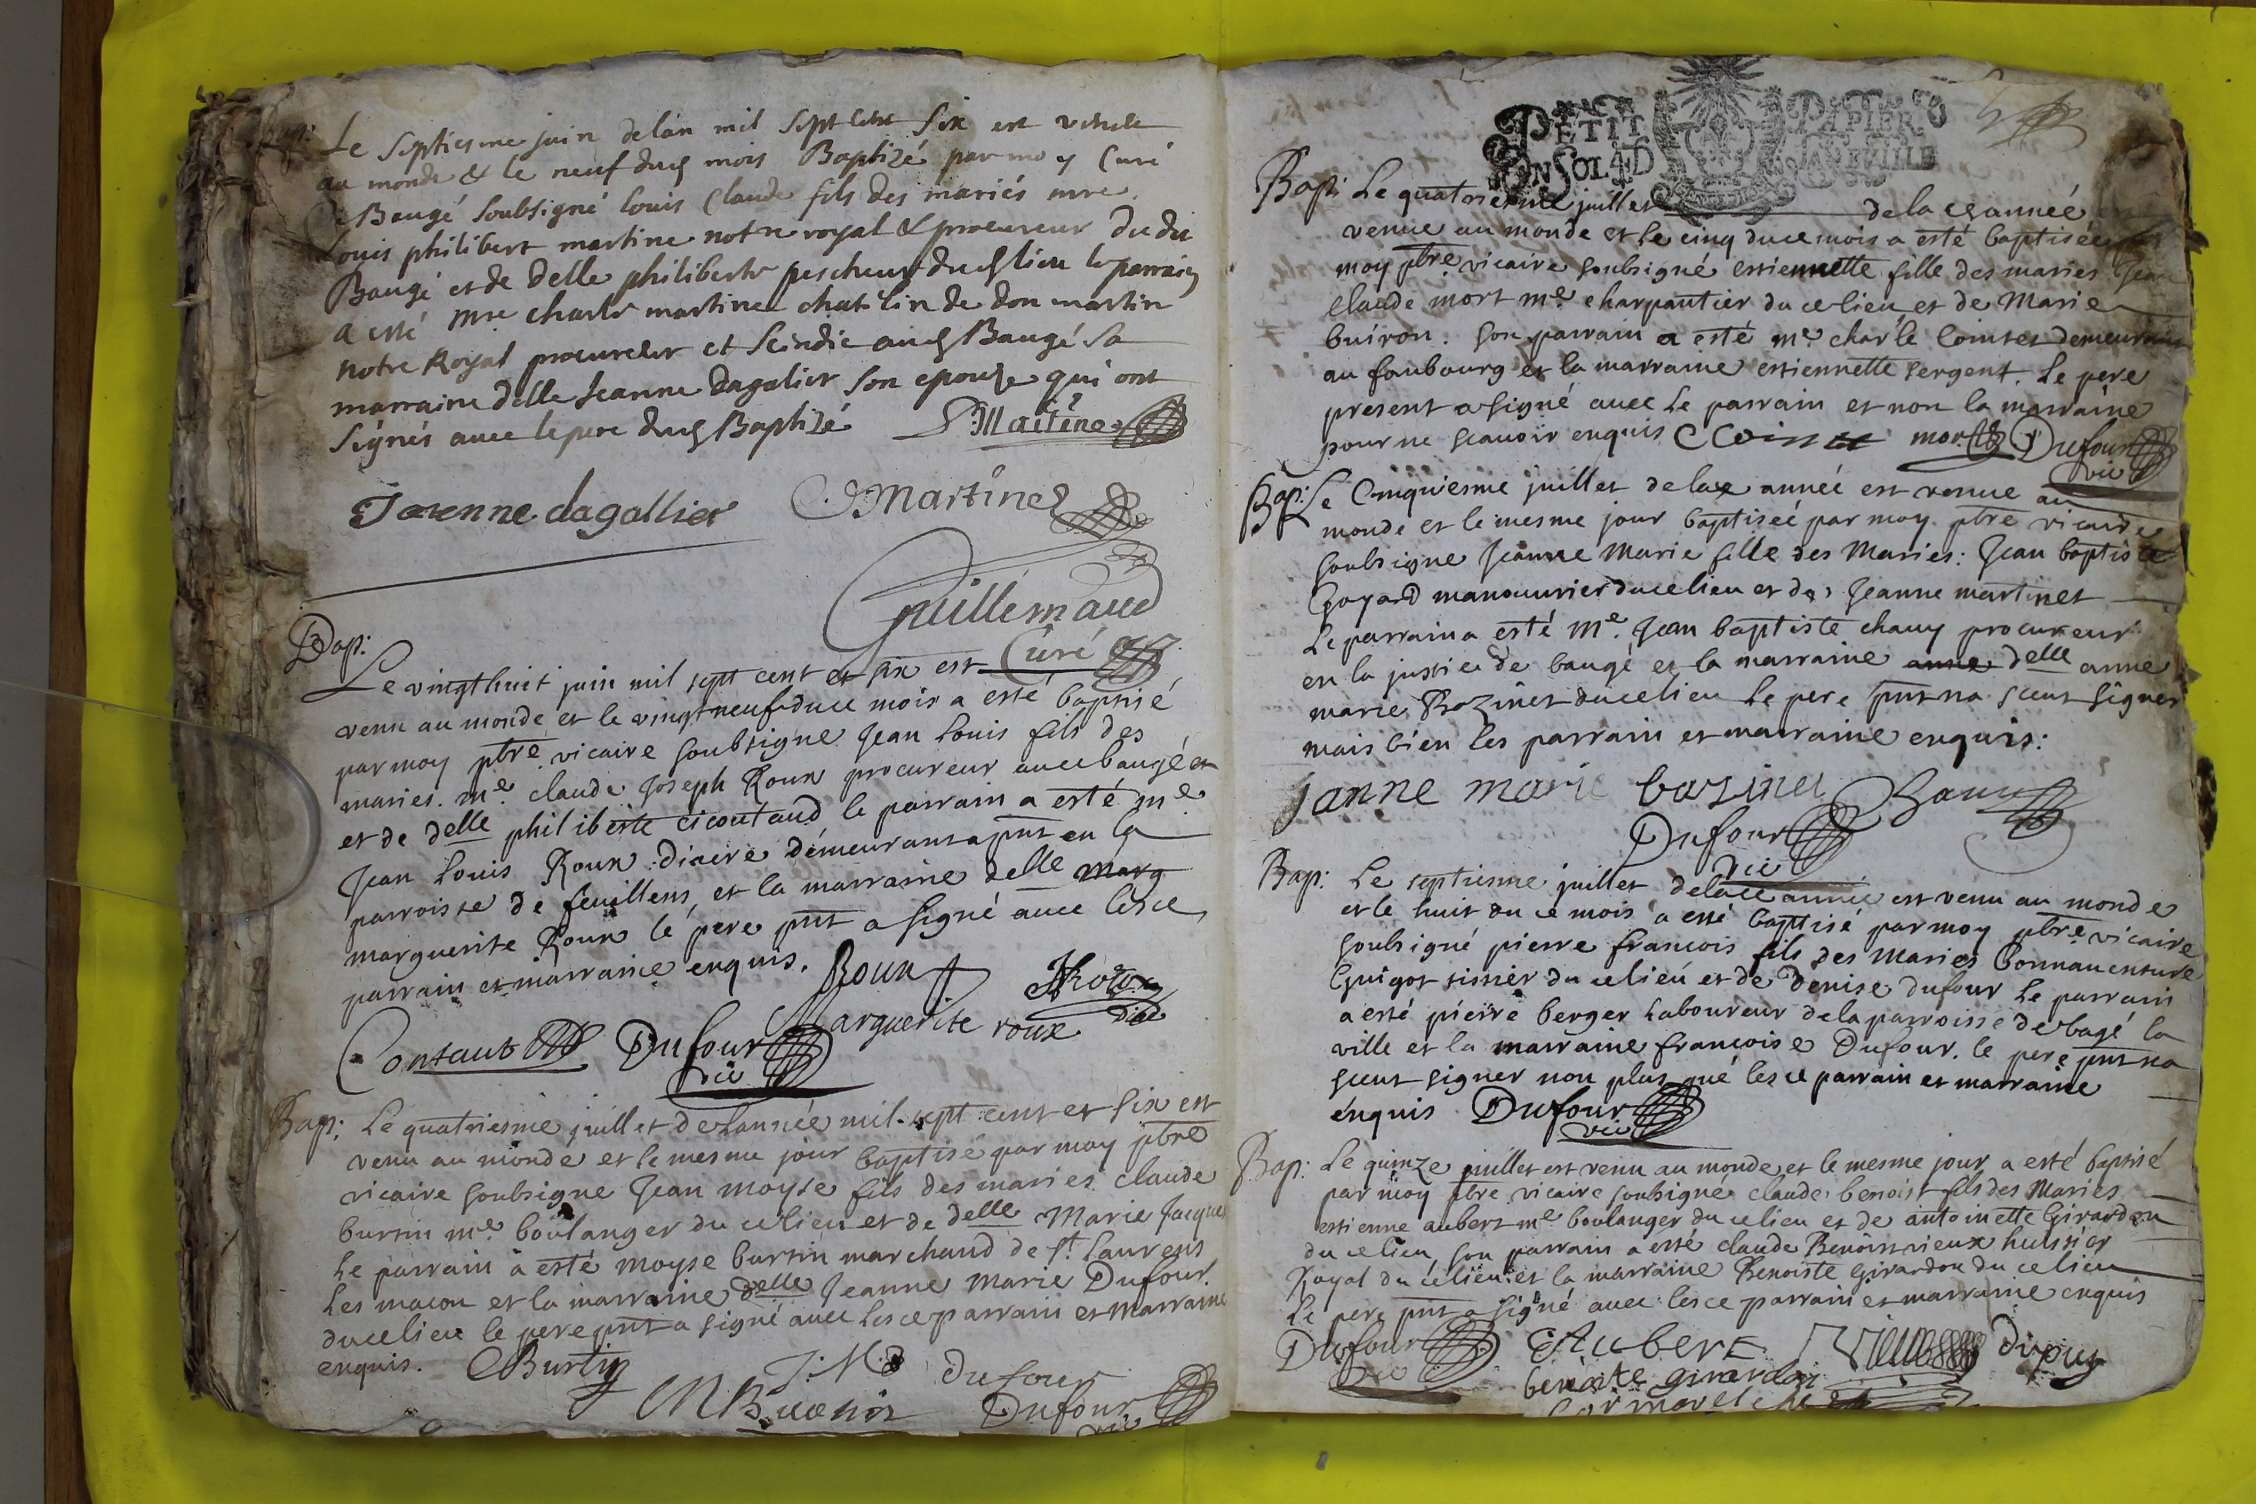 Bap:
Le septiesme juin delan mil sept cent six est venu
au monde & le neuf dud mois Baptizé par moy Curé
de Baugé soubsigné louis Claude fils des mariés mre
Louis philibert martine notre royal & procureur dudit
Baugé et de delle philiberte pescheur dud lieu le parrain
a esté mre charle martine chatelin de don martin
notre Royal procureur et scindic aud Baugé sa
marraine delle Jeanne dagalier son epouse qui ont
signés avec le pere dud Baptizé
Martine
Jeanne dagallier
Martine
Guillemaud
Curé
Bap:
Le vingthuit juin mil sept cent et six est
venu au monde et le vingtneuf duce mois a esté baptisé
par moy pbre vicaire soubsigne Jean Louis fils des
maries me claude Joseph Roux procureur auce baugé
et de delle philiberte le parrain a esté me
Jean Louis Roux diacre demeurant a pnt en la
parroisse de feuillens, et la marraine delle marg
marguerite Roux le pere pnt a signé avec lesce
parrain et marraine enquis.
Roux
JRoux
diac
Marguerite roux
Contaut
Dufour
vic
Bap:
Le quatriesme juillet de lannée mil sept cent et six est
venu au monde et le mesme jour baptisé par moy pbre
vicaire soubsigne Jean moyse fils des maries claude
burtin me boulanger du ce lieu et de delle Marie Jacque
Le parrain a esté moyse burtin marchand de st Laurens
Les macon et la marraine delle Jeanne Marie Dufour
ducelieu le pere pnt a signé avec lesce parrain et marraine
enquis.
CBurtin
J: M:
dufour
Dufour
vic
PETIT PAPIER
UN SOL 4D LA FEUILLE
Bap:
Le quatriesme juillet de la ce année
venue au monde et le cinq duce mois a esté baptisée
moy pbre vicaire soubsigné estiennette fille des maries Jean
Claude mort me charpantier du ce lieu et de Marie
buiron. son parrain a esté me charle Cointet demeurant
au faubourg et la marraine estiennette sergent. Le pere
present a signé avec Le parrain et non la marraine
pour ne scavoir enquis
mort
Dufour
vic
Bap:
Le Cinquiesme juillet delace année est venue au
monde et le mesme jour baptiseé par moy pbre vicaire
soubsigne Jeanne Marie fille des Maries: Jean baptiste
Goyard manouvrier ducelieu et de Jeanne martinet
Le parrain a esté Me. Jean baptiste chauy procureur
en la justice de baugé et la marraine anne delle anne
marie Bozinet ducelieu le pere pnt na sceut signer
mais bien les parrain et marraine enquis:
janne marie bazinet
Dufour
vic
Bap:
Le septiesme juillet delace année est venu au monde
et le huit du ce mois a esté baptisé par moy pbre vicaire
soubsigné pierre francois fils des Maries bonnauenture
Guigot tissier du ce lieu et de Denise dufour Le parrain
a esté pierre berger Laboureur de la parroisse de bagé la
ville et la marraine francoise Dufour. le pere pnt na
sceut signer non plus qué lesce parrain et marraine
enquis
Dufour
vic
Bap:
Le quinze juillet est venu au monde et le mesme jour a esté baptisé
par moy pbre vicaire soubsigné claude benoist fils des Maries
estienne aubert me boulanger du ce lieu et de antoinette Girardon
du ce lieu son parrain a esté claude Benoist vieux huissier
Royal du célieu et la marraine Benoiste Girardon du ce lieu
Le pere pnt a signé avec lesce parrain et marraine enquis
Dufour
vic
EAubert
dupuy
benoite girardon